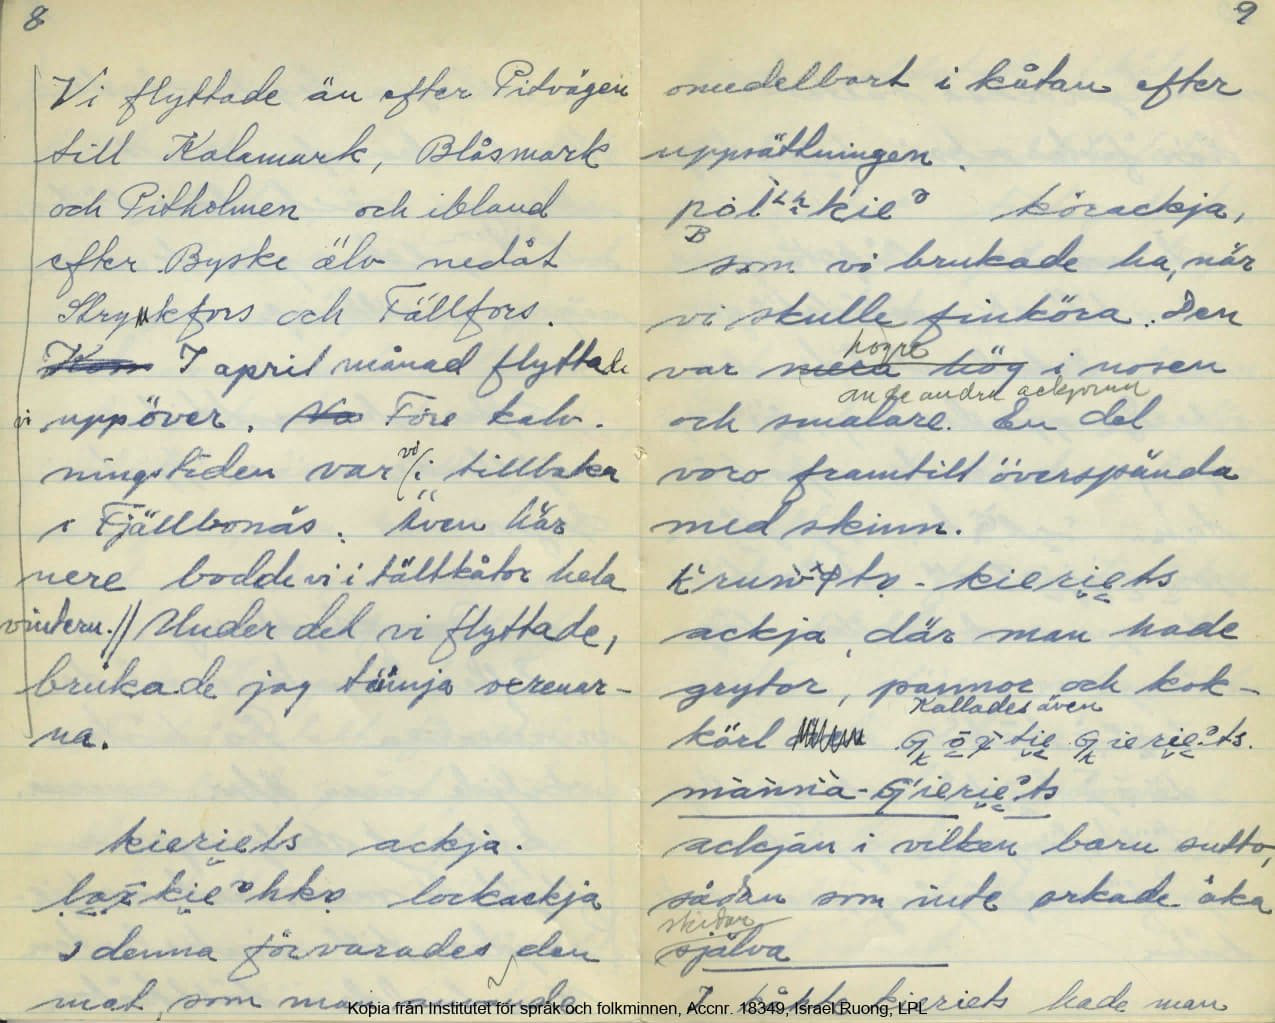 8
Vi flyttade än efter Pitvägen
till Kalamark, Blåsmark
och Pitholmen och ibland
efter Byske älv nedåt
Strykfors och Fällfors.
I april månad flyttade
vi uppöver. Före kalv-
ningstiden var vi i tillbaka
i Fjällbonäs. Även här
nere bodde vi i tältkåtor hela
vintern. // Under det vi flyttade,
brukade jag tämja oxrenar-
na.
kieriets ackja.
lockackja
I denna förvarades den
mat, som man
9
omedelbart i kåtan efter
uppsättningen.
körackja,
B
som vi brukade ha, när
vi skulle finköra. Den
högre
var i nosen
än de andra ackjorna
och smalare. En del
voro framtill överspända
med skinn.
kieriets
ackja, där man hade
grytor, pannor och kok-
Kallades även
kärl
ackjan i vilken barn sutto,
sådan som inte orkade åka
skidor
själva
I kieriets hade man
Kopia från Institutet för språk och folkminnen, Accnr. 18349, Israel Ruong, LPL